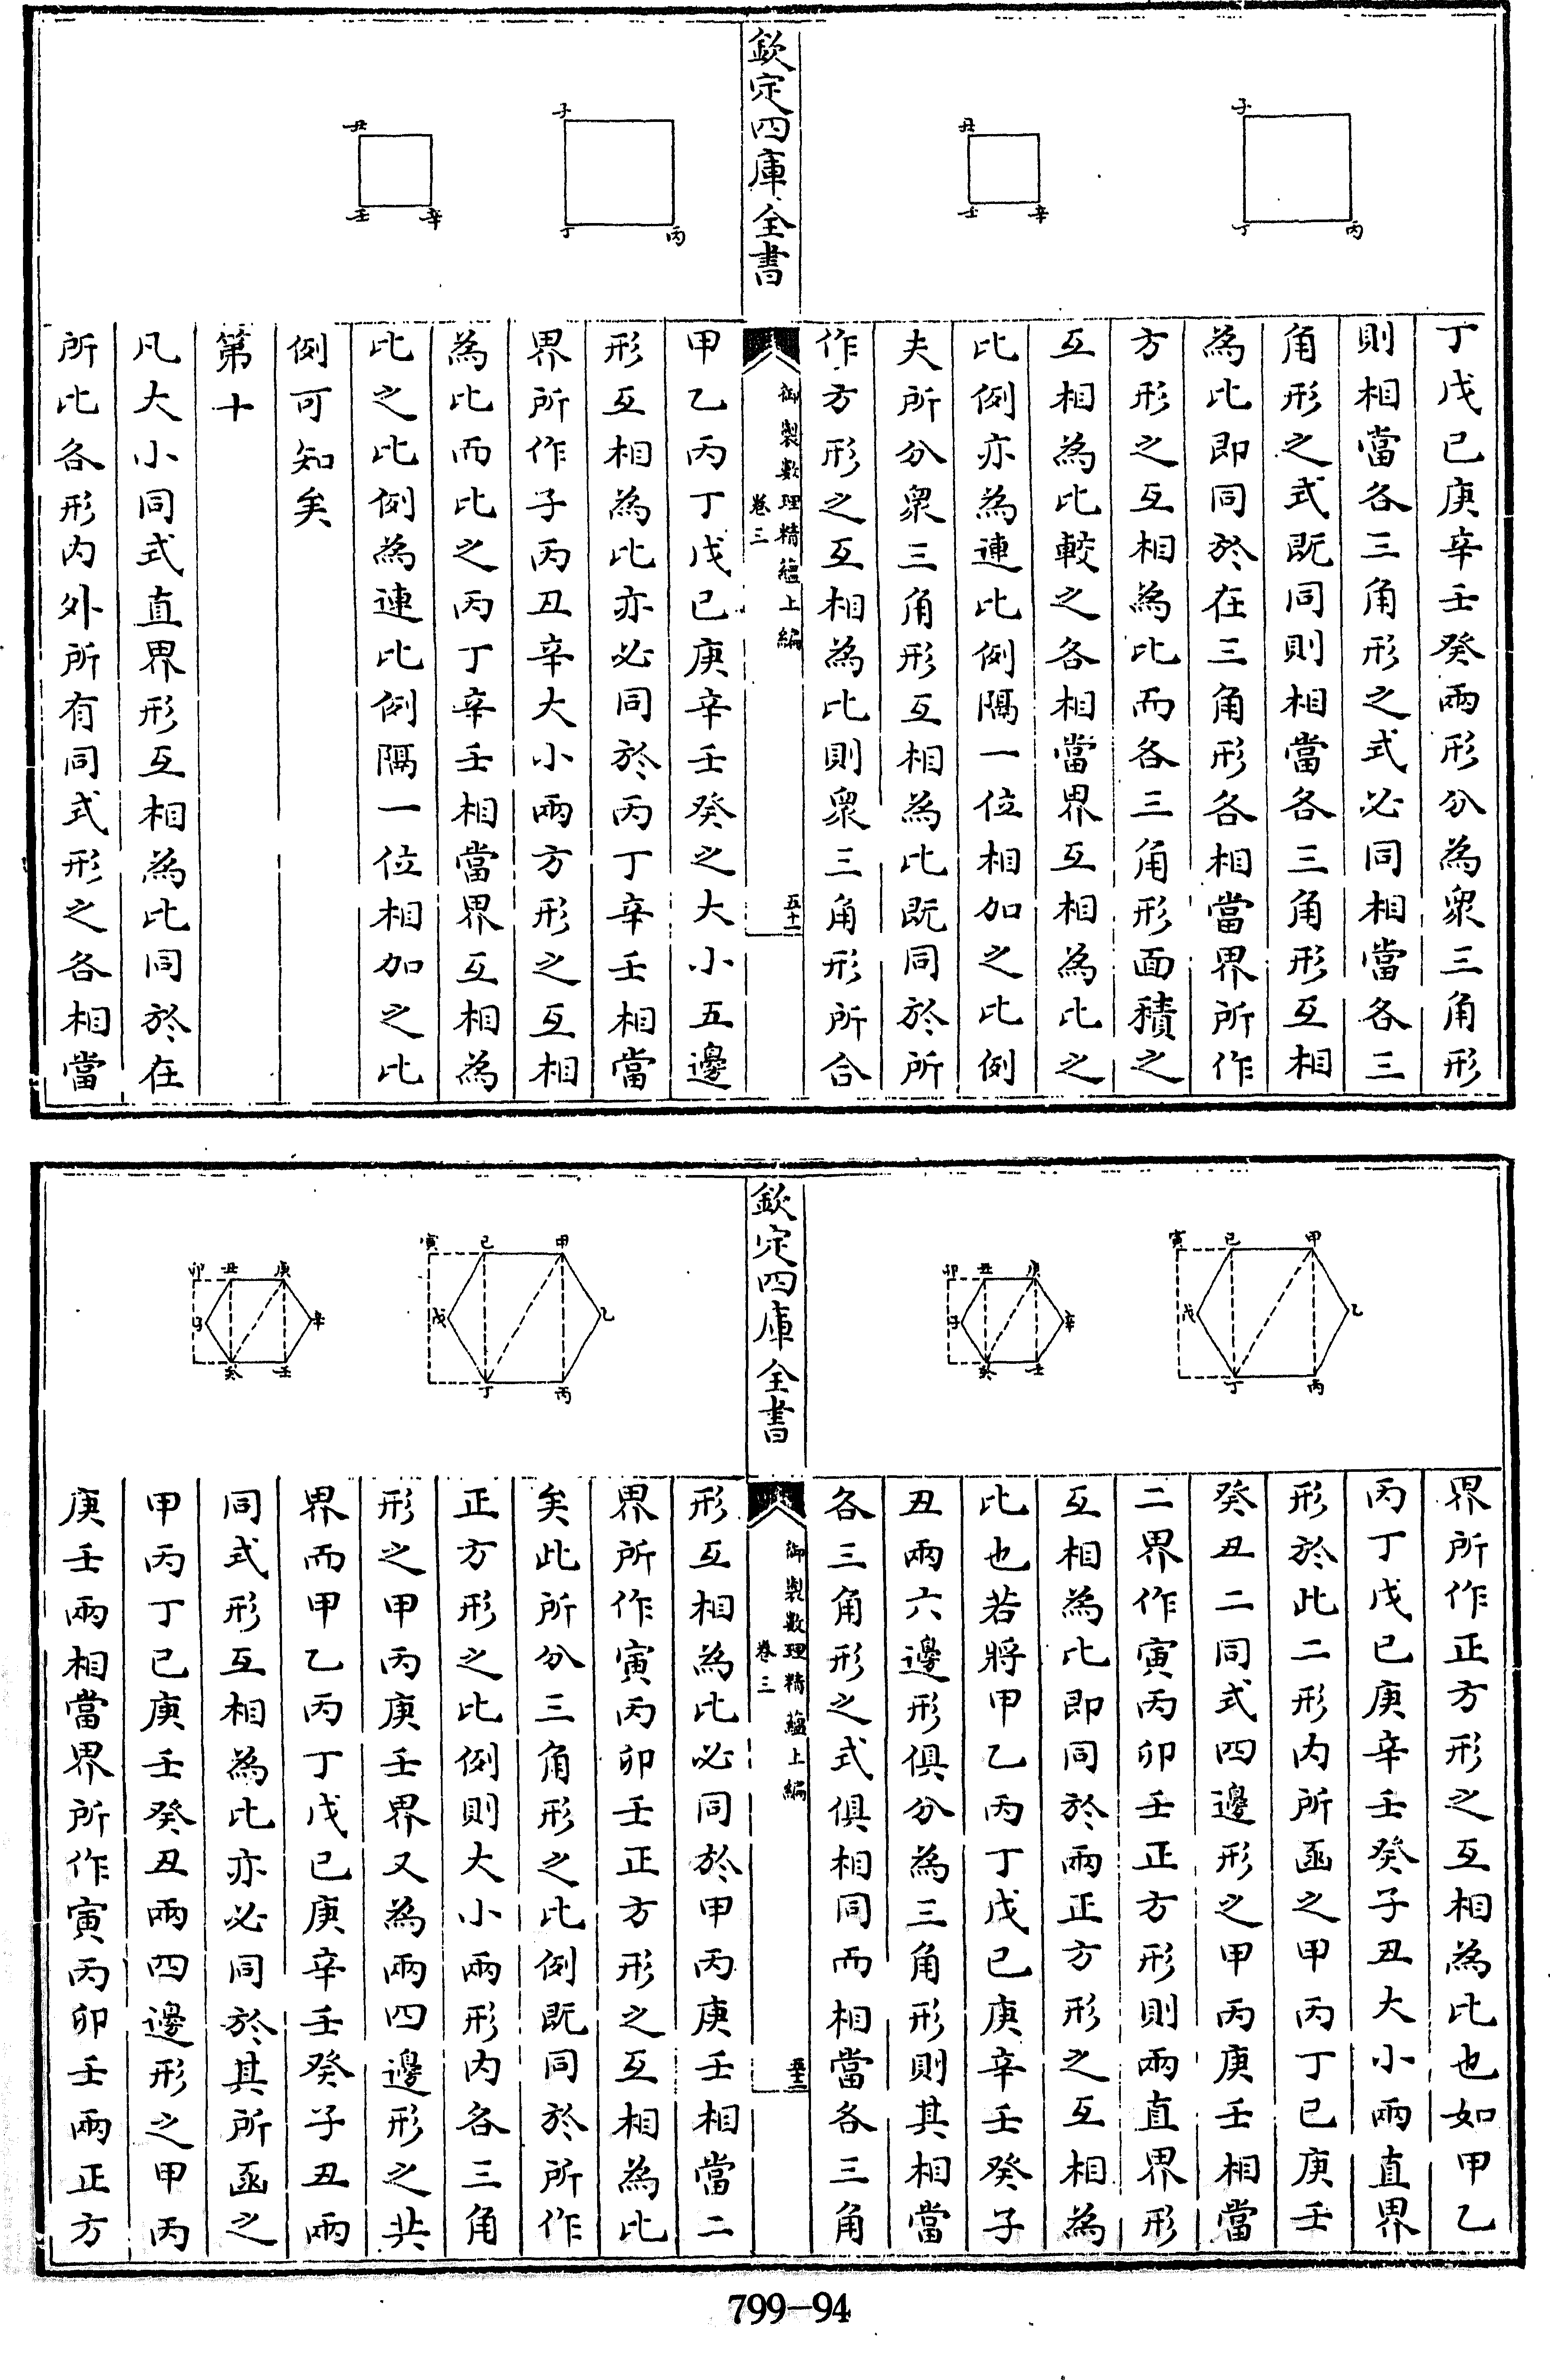 子
丁
丙
丑
壬
辛
丁戊己庚辛壬癸兩形分為衆三角形
則相當各三角形之式必同相當各三
角形之式既同則相當各三角形互相
為比即同於在三角形各相當界所作
方形之互相為比而各三角形面積之
互相為比較之各相當界互相為比之
比例亦為連比例隔一位相加之比例
夫所分衆三角形互相為比既同於所
作方形之互相為比則衆三角形所合
欽定四庫全書
御製數理精蘊上編
卷三
五十一
子
丁
丙
丑
壬
辛
甲乙丙丁戊己庚辛壬癸之大小五邊
形互相為比亦必同於丙丁辛壬相當
界所作子丙丑辛大小兩方形之互相
為比而比之丙丁辛壬相當界互相為
比之比例為連比例隔一位相加之比
例可知矣
第十
凡大小同式直界形互相為比同於在
所比各形内外所有同式形之各相當
寅
己
甲
戊
乙
丁
丙
卯
丑
庚
子
辛
癸
壬
界所作正方形之互相為比也如甲乙
丙丁戊己庚辛壬癸子丑大小兩直界
形於此二形内所函之甲丙丁己庚壬
癸丑二同式四邊形之甲丙庚壬相當
二界作寅丙卯壬正方形則兩直界形
互相為比即同於兩正方形之互相為
比也若將甲乙丙丁戊己庚辛壬癸子
丑兩六邊形俱分為三角形則其相當
各三角形之式俱相同而相當各三角
欽定四庫全書
御製數理精蘊上編
卷三
五十二
寅
己
甲
戊
乙
丁
丙
卯
丑
庚
子
辛
癸
壬
形互相為比必同於甲丙庚壬相當二
界所作寅丙卯壬正方形之互相為比
矣此所分三角形之比例既同於所作
正方形之比例則大小兩形内各三角
形之甲丙庚壬界又為兩四邊形之共
界而甲乙丙丁戊己庚辛壬癸子丑兩
同式形互相為比亦必同於其所函之
甲丙丁己庚壬癸丑兩四邊形之甲丙
庚壬兩相當界所作寅丙卯壬兩正方
799-94